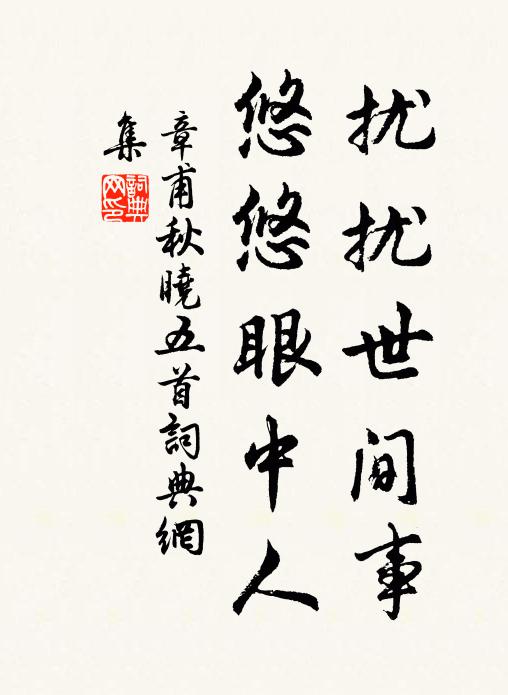 扰扰世间事
悠悠眼中人
章甫秋曉五首詞典網
集
詞典
网印